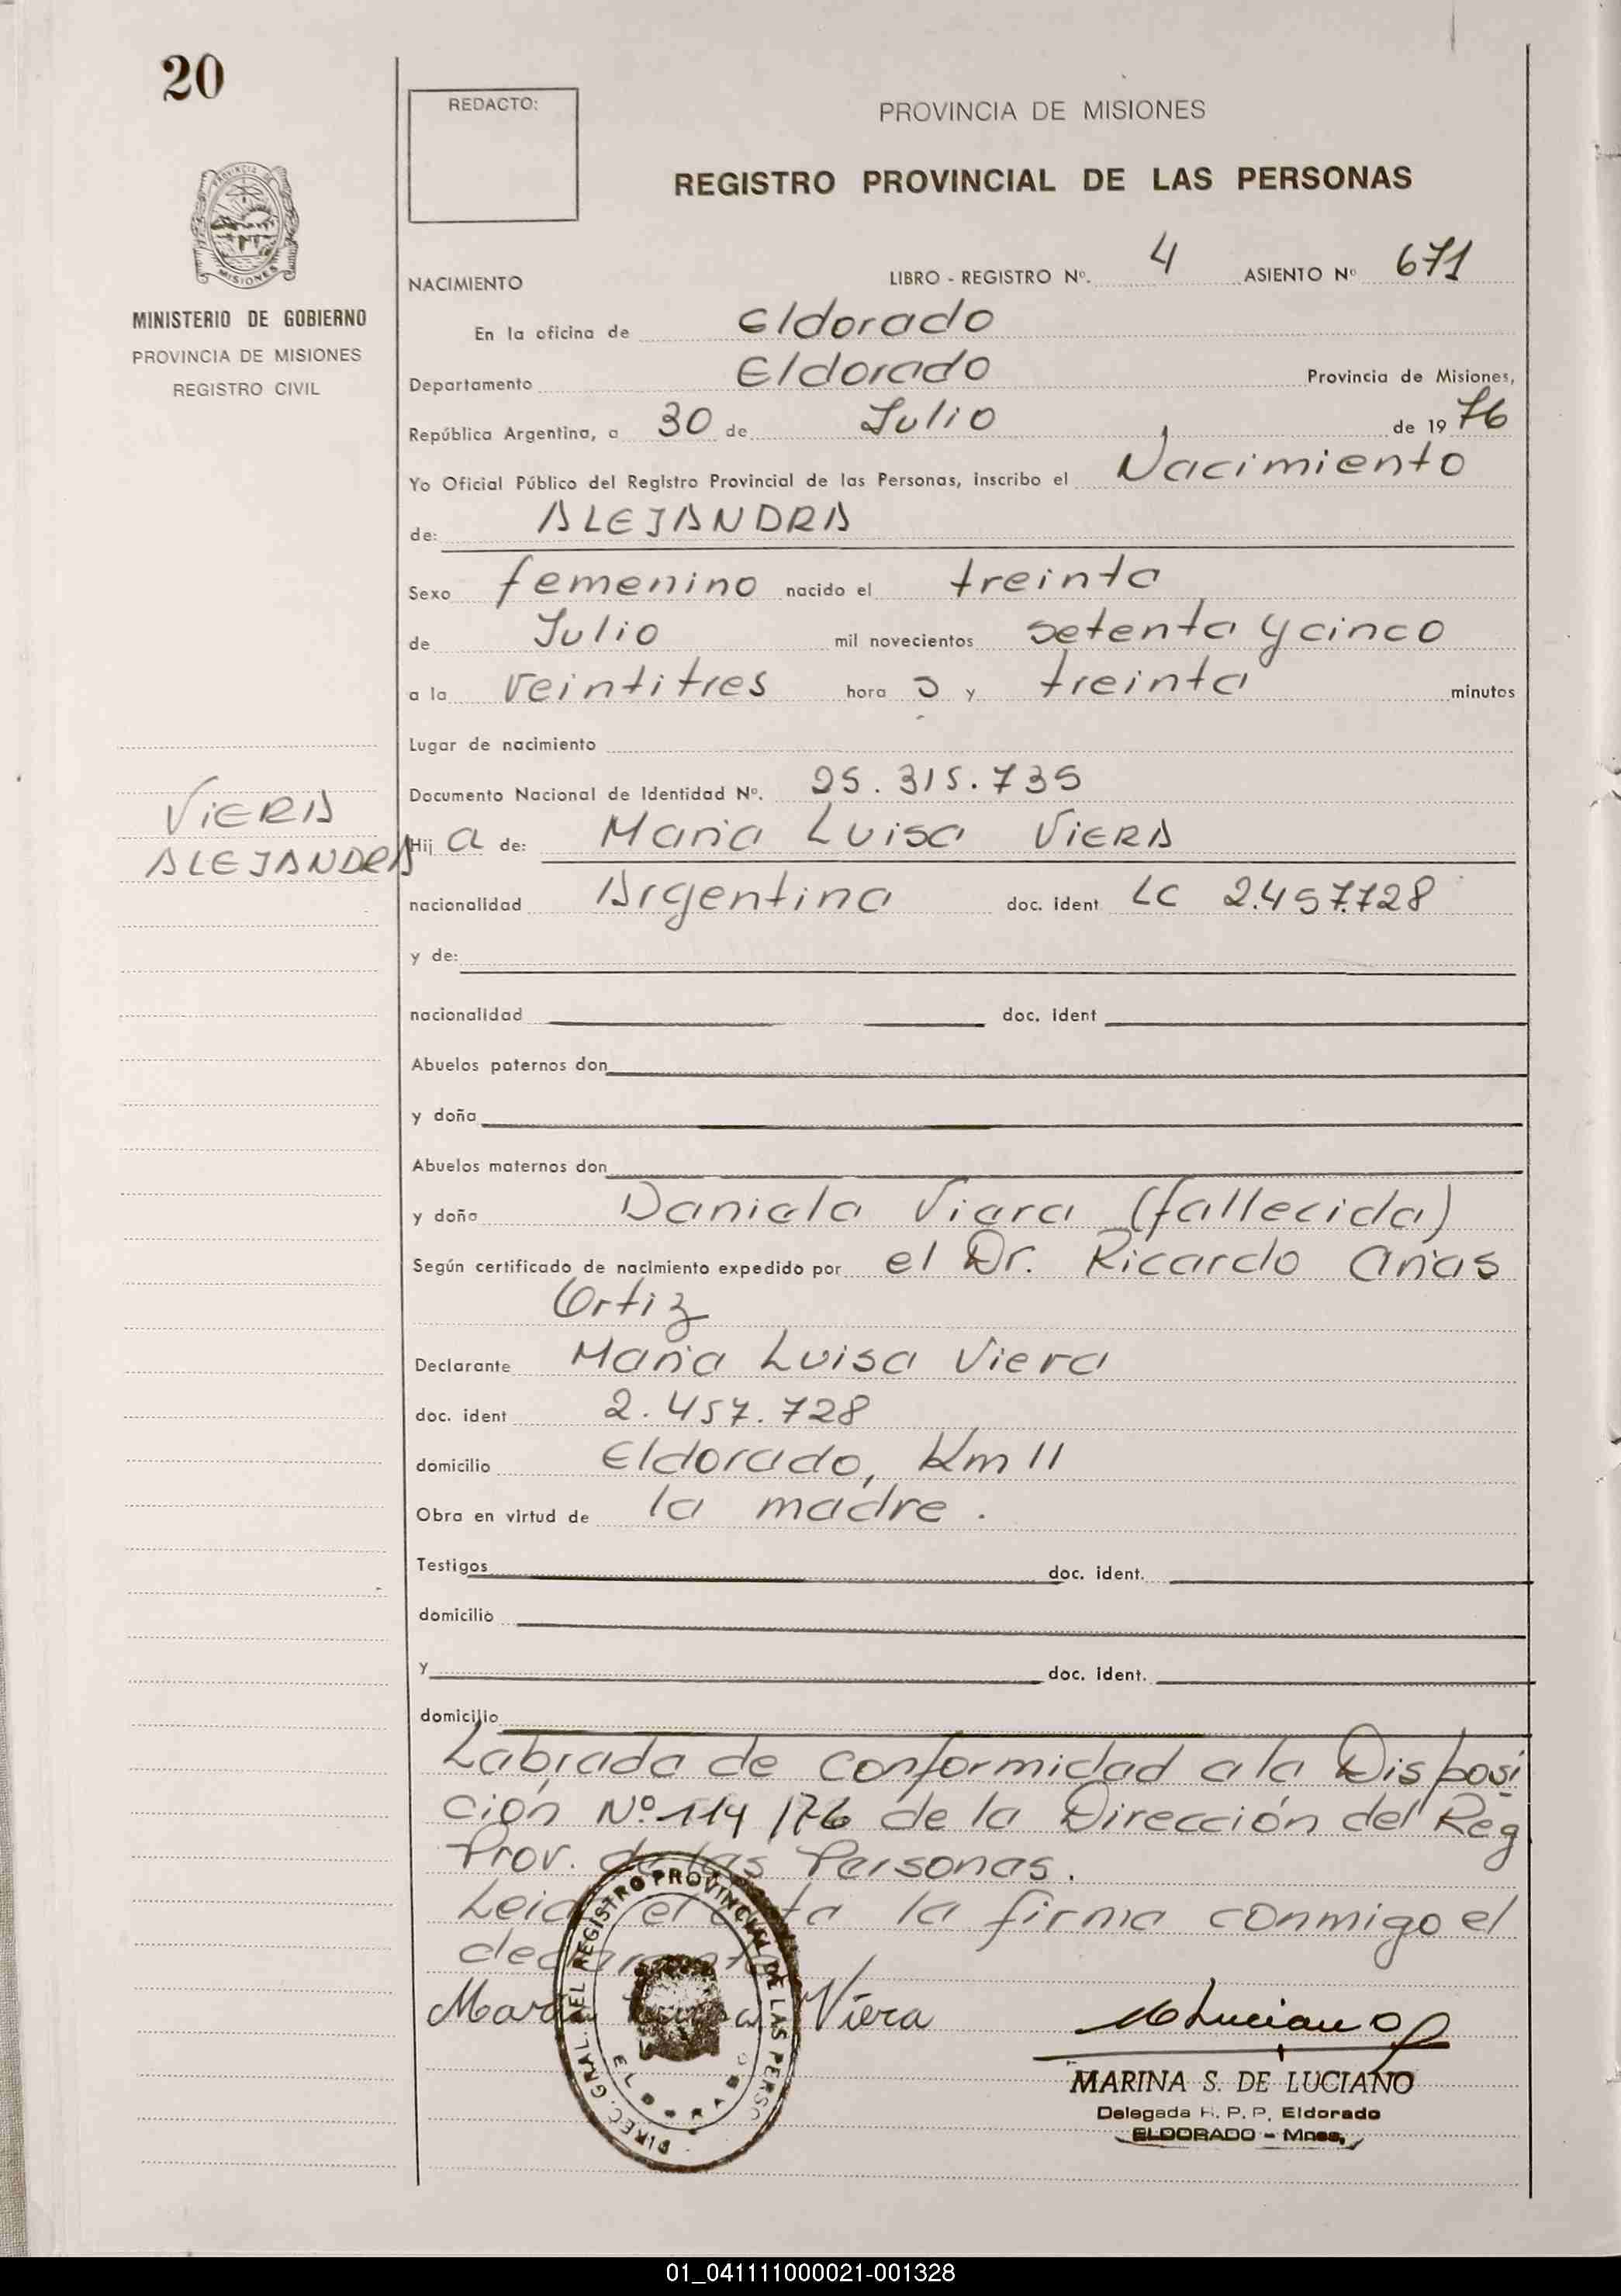 20
REDACTO:
PROVINCIA DE MISIONES
REGISTRO PROVINCIAL DE LAS PERSONAS
PROVINCIA DE MISIONES
MINISTERIO DE GOBIERNO
PROVINCIA DE MISIONES
REGISTRO CIVIL
NACIMIENTO LIBRO - REGISTRO Nº. 4 ASIENTO Nº 671
En la oficina de Eldorado
Departamento Eldorado Provincia de Misiones,
República Argentina, a 30 de Julio de 1976
Yo Oficial Público del Registro Provincial de las Personas, inscribo el Nacimiento
de: ALEJANDRA
Sexo femenino nacido el treinta
de Julio mil novecientos setenta y cinco
a la veintitres hora s y treinta minutos
Lugar de nacimiento
Documento Nacional de Identidad Nº. 25.315.735
VIERA
ALEJANDRA
Hij a de: Maria Luisa VIERA
nacionalidad Argentina doc. ident LC 2.457.728
y de:
nacionalidad doc. ident
Abuelos paternos don
y doña
Abuelos maternos don
y doña Daniela Viera (fallecida)
Según certificado de nacimiento expedido por el Dr. Ricardo Arias
Ortiz
Declarante Maria Luisa Viera
doc. ident 2.457.728
domicilio Eldorado, Km 11
Obra en virtud de la madre.
Testigos doc. ident.
domicilio
y doc. ident.
domicilio
Labrada de conformidad a la Disposi
ción Nº 114/76 de la Dirección del Reg
Prov. de las Personas.
Leida el acta la firma conmigo el
declarante
Maria Luisa Viera
DIREC. GRAL. DEL REGISTRO PROVINCIAL DE LAS PERSO
ELDORADO
MARINA S. DE LUCIANO
Delegada R. P. P. Eldorado
ELDORADO - Mnes,
01_041111000021-001328